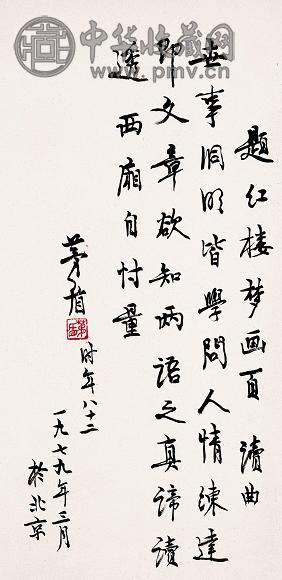 中华收藏网
www.pmv.cn
题红楼梦画页 读曲
世事洞明皆學問人情練達
即文章欲知两语之真谛读
透西廂自忖量
茅盾 时年八十二
一九七九年三月
於北京